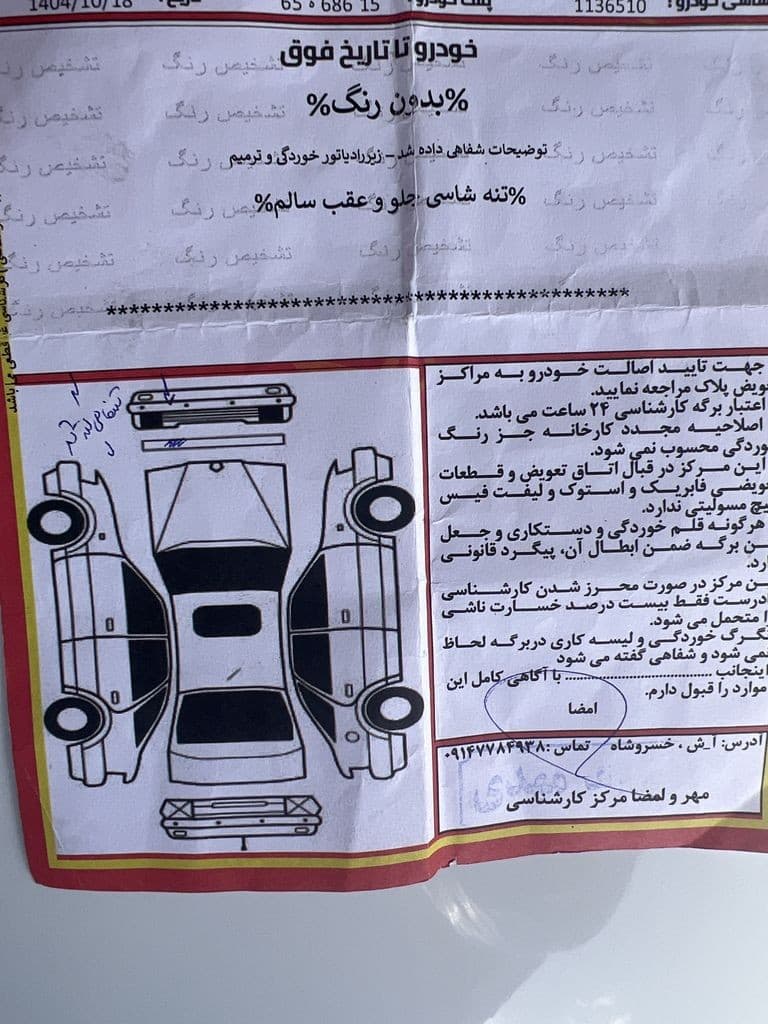 1404/10/18 تاریخ:
65 ° 686 15
1136510
خودرو تا تاریخ فوق
%بدون رنگ%
توضیحات شفاهی داده شد - زیررادیاتور خوردگی و ترمیم
%تنه شاسی جلو و عقب سالم%
جهت تایید اصالت خودرو به مراکز
تعویض پلاک مراجعه نمایید.
اعتبار برگه کارشناسی ۲۴ ساعت می باشد.
اصلاحیه مجدد کارخانه جز رنگ
خوردگی محسوب نمی شود.
این مرکز در قبال اتاق تعویض و قطعات
تعویضی فابریک و استوک و لیفت فیس
هیچ مسولیتی ندارد.
هرگونه قلم خوردگی و دستکاری و جعل
این برگه ضمن ابطال آن، پیگرد قانونی
دارد.
این مرکز در صورت محرز شدن کارشناسی
نادرست فقط بیست درصد خسارت ناشی
را متحمل می شود.
تگرگ خوردگی و لیسه کاری دربرگه لحاظ
نمی شود و شفاهی گفته می شود
اینجانب .................... با آگاهی کامل این
موارد را قبول دارم.
امضا
آدرس: آ_ش ، خسروشاه - تماس :۰۹۱۴۷۷۸۴۹۳۸
مهر و امضا مرکز کارشناسی
تشخیص رنگ